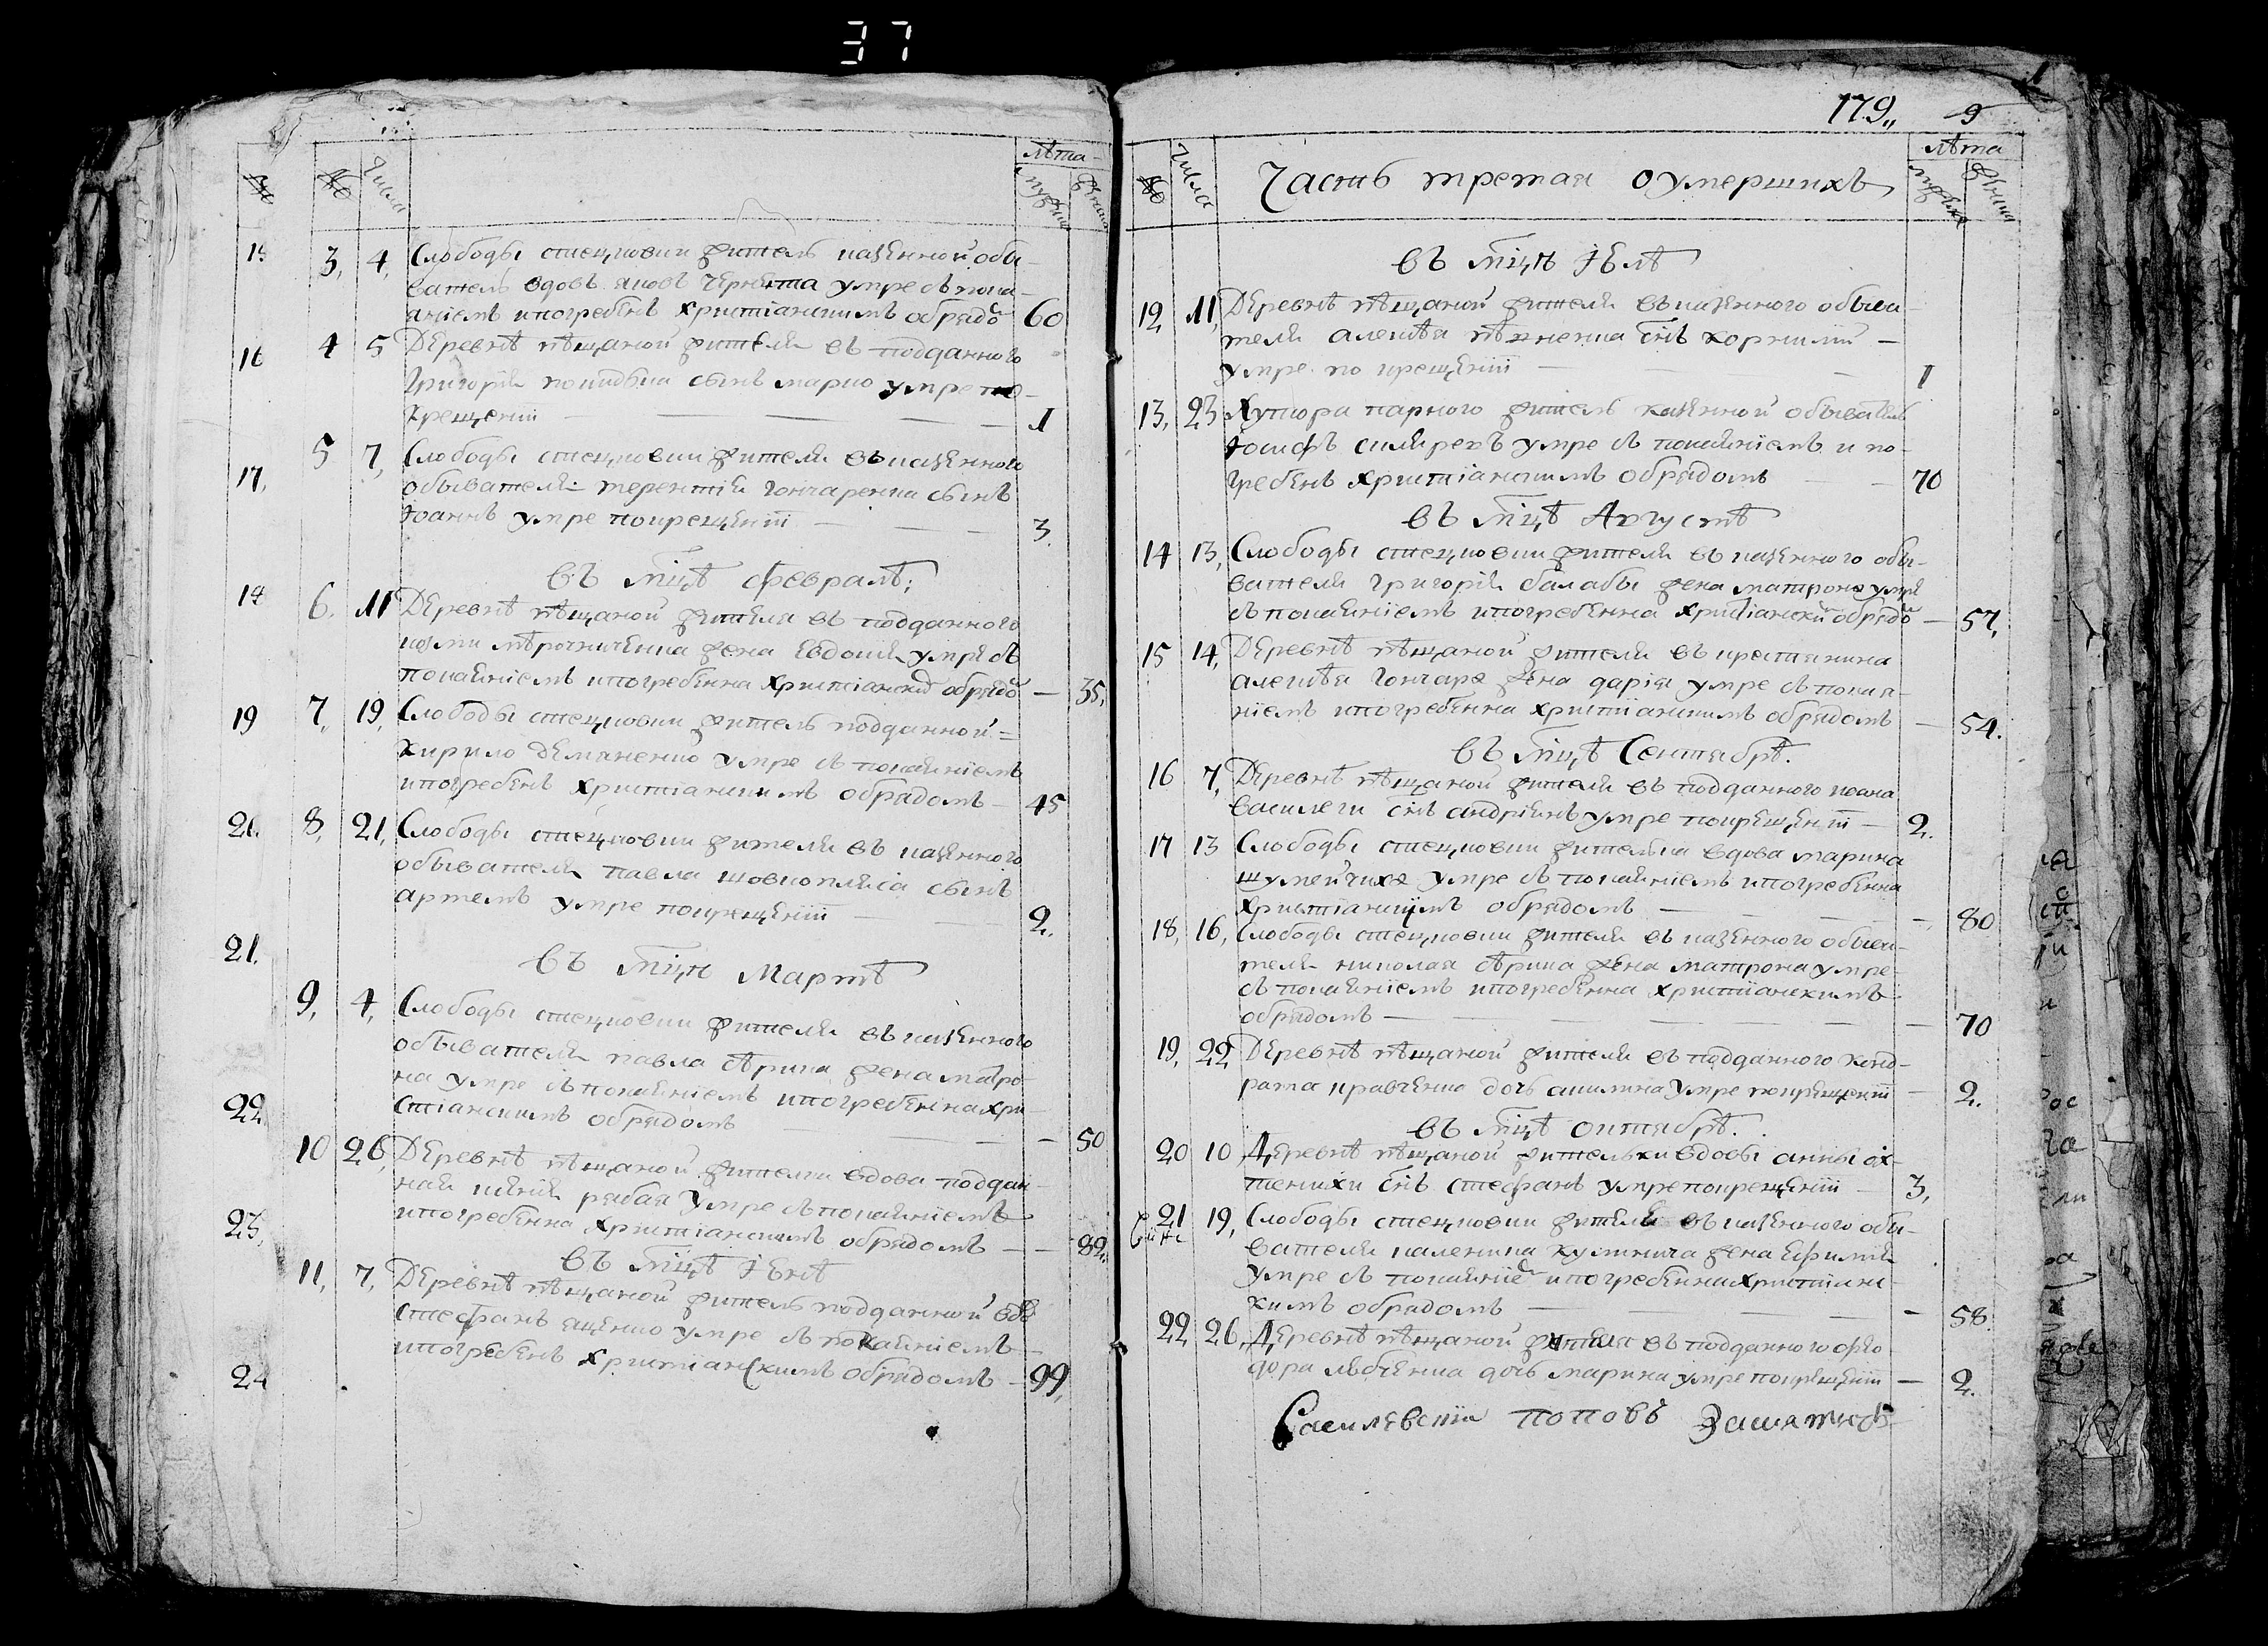 37
лѣта
№ № числа мужеска женска
15 3, 4, Слободы стецковки житель казенной обы-
ватель вдовъ яковъ умре съ пока-
аніемъ и погребенъ христіанкимъ обрядо 60
16 4 5 Деревнѣ пѣщаной жителя въ подданного
Григорія сынъ марко умре по
крещеніи 1
17, 5 7, Слободы стецковки жителя въ казенного
обывателя терентія гончаренка сынъ
Іоаннъ умре по крещеніи 3.
въ мцѣ февралѣ;
18 6. 11 Деревнѣ пѣщаной жителя въ подданного
жена Евдокія умре съ
покаяніемъ и погребенна христіански обрядо — 35,
19 7, 19, Слободы стецковки житель подданной
кирило Деманенко умре съ покаяніемъ
и погребенъ христіанкимъ обрядомъ — 45
20. 8, 21, Слободы стецковки жителя въ казенного
обывателя павла шовкопляса сынъ
артемъ умре по крещеніи 2.
21. въ мцѣ Мартѣ
9, 4, Слободы стецковки жителя въ казенного
обывателя павла сѣрика жена матро-
на умре съ покаяніемъ и погребенна хри-
22 стіанскимъ обрядомъ — 50
10 26, Деревнѣ пѣщаной жителки вдова поддан-
ная рабая умре съ покаяніемъ
23, и погребенна христіанскимъ обрядомъ — 82.
въ мцѣ Іюнѣ
11, 7, Деревнѣ пѣщаной житель подданной вдо
стефанъ яценко умре съ покаяніемъ
и погребенъ христіанскимъ обрядомъ — 99,
24
179,, 9
лѣта
№ числа Часть третая оумершихъ мужеска женска
въ мцѣ Іюлѣ
12, 11, Деревнѣ пѣщаной жителя въ казенного обыва-
теля алексѣя снъ корнилій —
умре по крещеніи 1
13, 23 Хутора парного житель казенной обыватель
Іосифъ умре съ покаяніемъ и по-
гребенъ христіанскимъ обрядомъ — 70
въ мцѣ Августѣ
14 13, Слободы стецковки жителя въ казенного обы-
вателя григорія балабы жена матрона умре
съ покаяніемъ и погребенна христіански обрядо — 57,
15 14, Деревнѣ пѣщаной жителя въ крестянина
алексѣя гончара жена дарія умре съ покая-
ніемъ и погребенна христіанскимъ обрядомъ — 54.
въ мцѣ Сентябрѣ.
16 7, Деревнѣ пѣщаной жителя въ подданного ивана
василеги снъ андріянъ умре по крещеніи — 2.
17 13 Слободы стецковки жителька вдова марина
шумейчиха умре съ покаяніемъ и погребенна
христіанскимъ обрядомъ — 80
18, 16, Слободы стецковки жителя въ казенного обыва-
теля николая сѣрика жена матрона умре
съ покаяніемъ и погребенна христіанскимъ
обрядомъ — 70
19, 22 Деревнѣ пѣщаной жителя въ подданного конд-
рата кравченка дочь акилина умре по крещеніи — 2.
въ мцѣ октябрѣ.
20 10, Деревнѣ пѣщаной жительки вдовы анны ох-
тенихи снъ стефанъ умре по крещеніи — 3,
21 19, Слободы стецковки жителя въ казенного обы-
вателя каленика жена Ефимія
умре съ покаяніе и погребенна христіанс-
кимъ обрядомъ — 58.
22 26, Деревнѣ пѣщаной жителя въ подданного фео-
дора дочь марина умре по крещеніи — 2.
поповъ